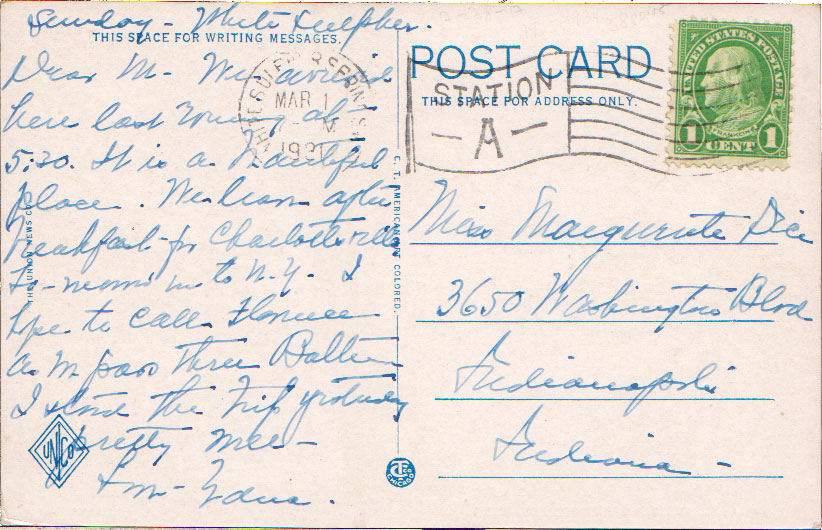 Sunday - White Sulpher.
THIS SPACE FOR WRITING MESSAGES.
Dear M- We arrived
here last evening at
5:30. It is a beautiful
place. We leave after
breakfast for Charlottesville
To-morrow to N.Y. I
hope to call Florence
as we pass thru Baltimore
I stood the trip yesterday
pretty well -
Edna.
THE UNION NEWS CO.
UNCO
C. T. AMERICAN ART COLORED.
CHICAGO
POST CARD
THIS SPACE FOR ADDRESS ONLY.
WHITE SULPHUR SPRINGS
MAR 1
M
1931
STATION
- A -
UNITED STATES POSTAGE
FRANKLIN
1 CENT 1
Miss Marguerite Dice
3650 Washington Blvd
Indianapolis
Indiana -